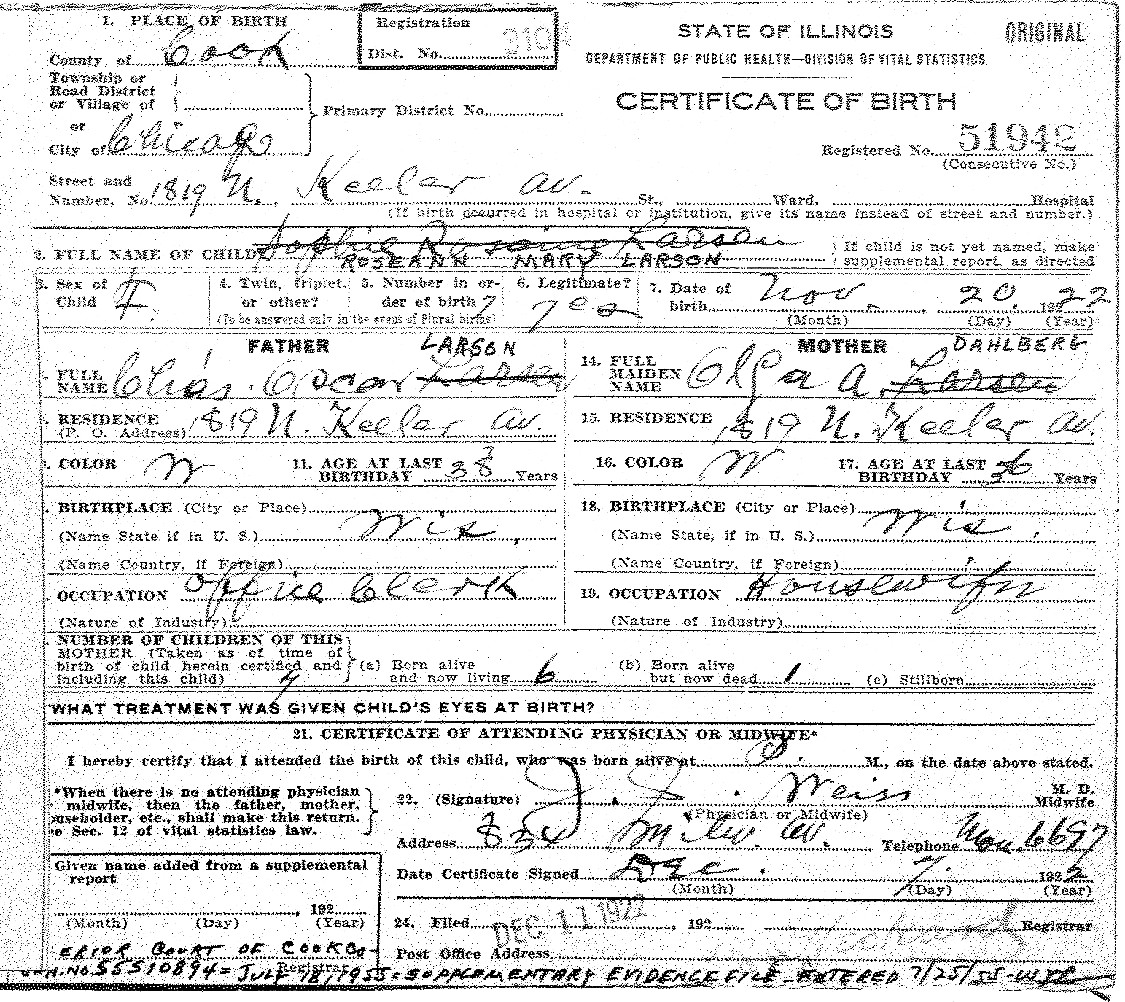 1. PLACE OF BIRTH
County of Cook
Registration
Dist. No. 3104
STATE OF ILLINOIS
ORIGINAL
DEPARTMENT OF PUBLIC HEALTH—DIVISION OF VITAL STATISTICS
CERTIFICATE OF BIRTH
Township or
Road District
or Village of
or
City of Chicago
Primary District No.
Registered No. 51942
(Consecutive No.)
Street and
Number, No. 1819 N. Keeler av. St., Ward. Hospital
(If birth occurred in hospital or institution, give its name instead of street and number.)
2. FULL NAME OF CHILD Sophie Larsen
ROSEANN MARY LARSON
If child is not yet named, make
supplemental report, as directed
3. Sex of
Child F.
4. Twin, triplet,
or other?
5. Number in or-
der of birth 7
(To be answered only in the event of Plural births)
6. Legitimate?
yes
7. Date of
birth Nov. 20, 1922
(Month) (Day) (Year)
FATHER
LARSON
FULL
NAME Chas. Oscar Larsen
RESIDENCE
(P. O. Address) 1819 N. Keeler av.
COLOR W
11. AGE AT LAST
BIRTHDAY 38 Years
BIRTHPLACE (City or Place)
(Name State if in U. S.) Wis.
(Name Country, if Foreign)
OCCUPATION Office Clerk
(Nature of Industry)
MOTHER
DAHLBERG
14. FULL
MAIDEN
NAME Olga A. Larsen
15. RESIDENCE 1819 N. Keeler av.
16. COLOR W
17. AGE AT LAST
BIRTHDAY Years
18. BIRTHPLACE (City or Place)
(Name State, if in U. S.) Wis.
(Name Country, if Foreign)
19. OCCUPATION Housewife
(Nature of Industry)
NUMBER OF CHILDREN OF THIS
MOTHER (Taken as of time of
birth of child herein certified and
including this child) 7
(a) Born alive
and now living 6
(b) Born alive
but now dead 1
(c) Stillborn
WHAT TREATMENT WAS GIVEN CHILD'S EYES AT BIRTH?
21. CERTIFICATE OF ATTENDING PHYSICIAN OR MIDWIFE*
I hereby certify that I attended the birth of this child, who was born alive at M., on the date above stated.
*When there is no attending physician
midwife, then the father, mother,
useholder, etc., shall make this return.
e Sec. 12 of vital statistics law.
22. (Signature) J. J. Weiss
M. D.
Midwife
(Physician or Midwife)
Address 834 Milw. av. Telephone Mon. 6697
Date Certificate Signed Dec. 7, 1922
(Month) (Day) (Year)
Given name added from a supplemental
report
, 192
(Month) (Day) (Year)
Registrar
24. Filed DEC 11 1922, 192 Registrar
Post Office Address
ERIOR COURT OF COOK CO-
N. NO 55S10894 = JULY 18, 1955 = SUPPLEMENTARY EVIDENCE FILE ENTERED 7/25/55